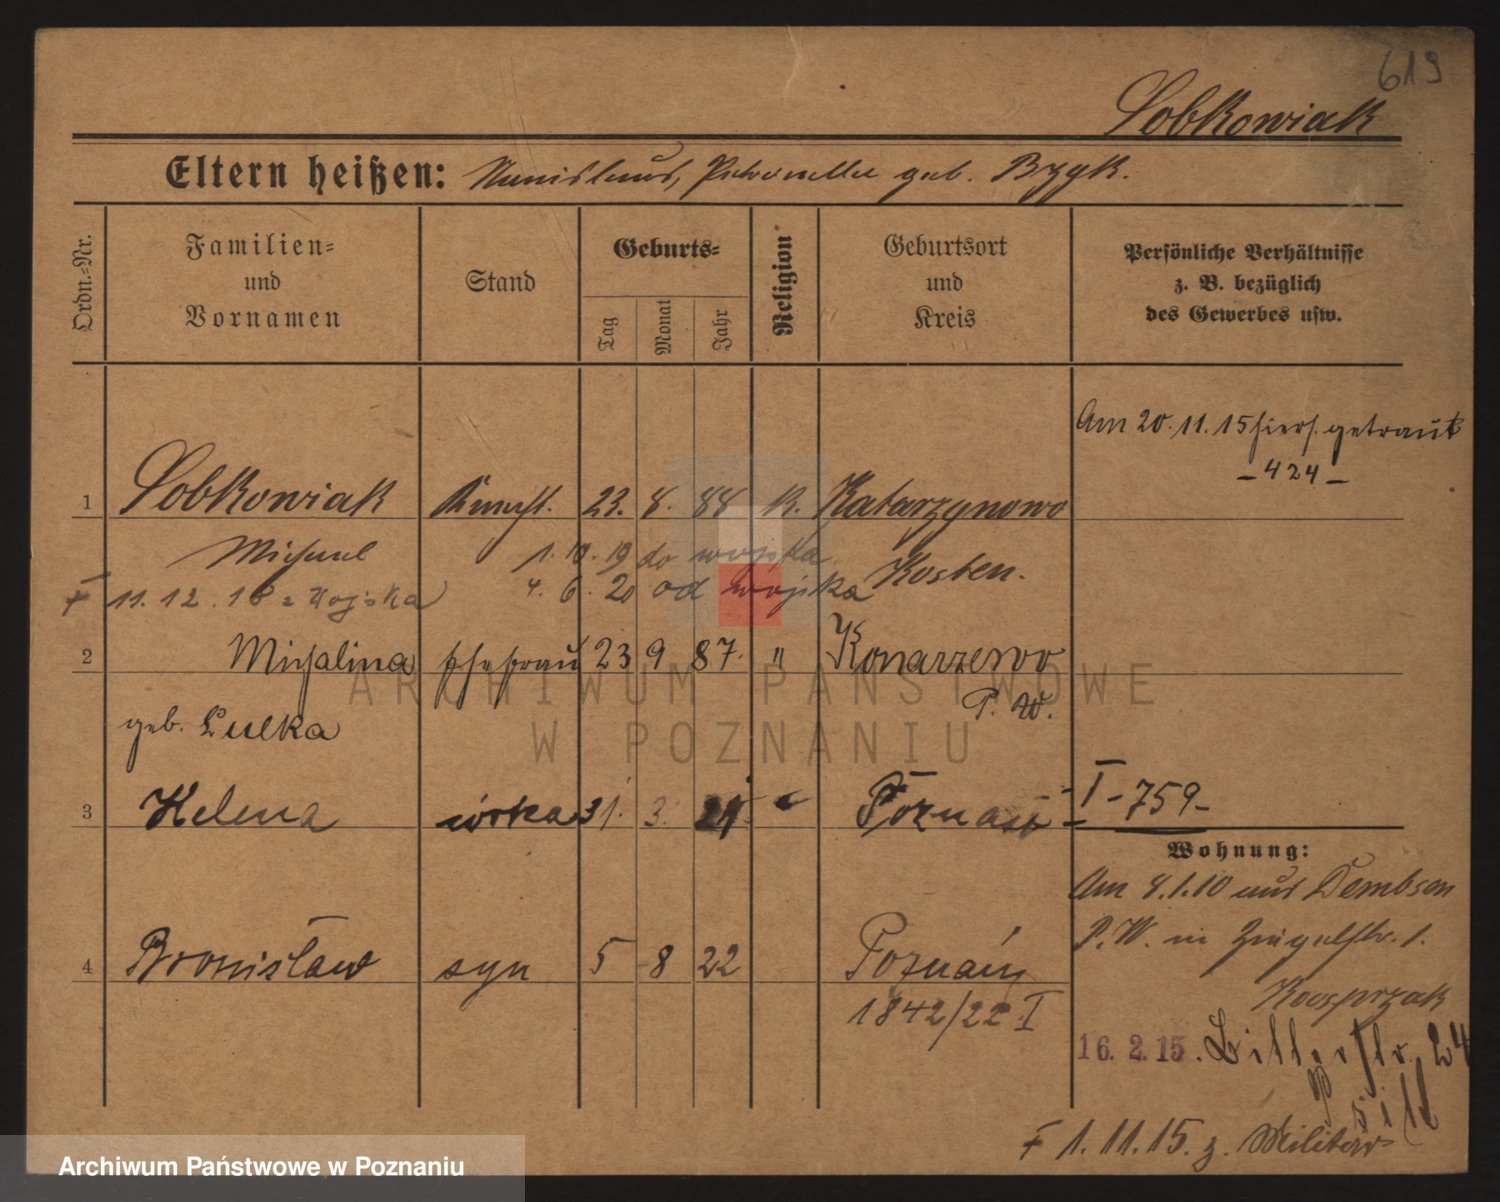 619
Sobkowiak
Eltern heißen: Stanislaus, Petronella geb. Bzyk.
Ordn.=Nr.
Familien=
und
Vornamen
Stand
Geburts=
Tag
Monat
Jahr
Religion
Geburtsort
und
Kreis
Persönliche Verhältnisse
z. B. bezüglich
des Gewerbes usw.
Am 20.11.15 hiers. getraut
- 424 -
1 Sobkowiak Knecht. 23. 8. 88 k. Katarzynowo
Michael 1.10.19 do wojska Kosten.
11.12.18 z wojska 4.6.20 od wojska
2 Michalina Ehefrau 23 9 87. " Konarzewo
P. W.
geb. Lulka
3 Helena córka 31. 3. 21 " Poznań
I-759-
Wohnung:
Am 8.1.10 aus Dembsen
P. W. in Ziegelstr. 1.
4 Bronisław syn 5 8 22 Poznań
1842/22 I
16. 2. 15.
24
1.11.15. z. Militär
Archiwum Państwowe
w Poznaniu
Archiwum Państwowe w Poznaniu